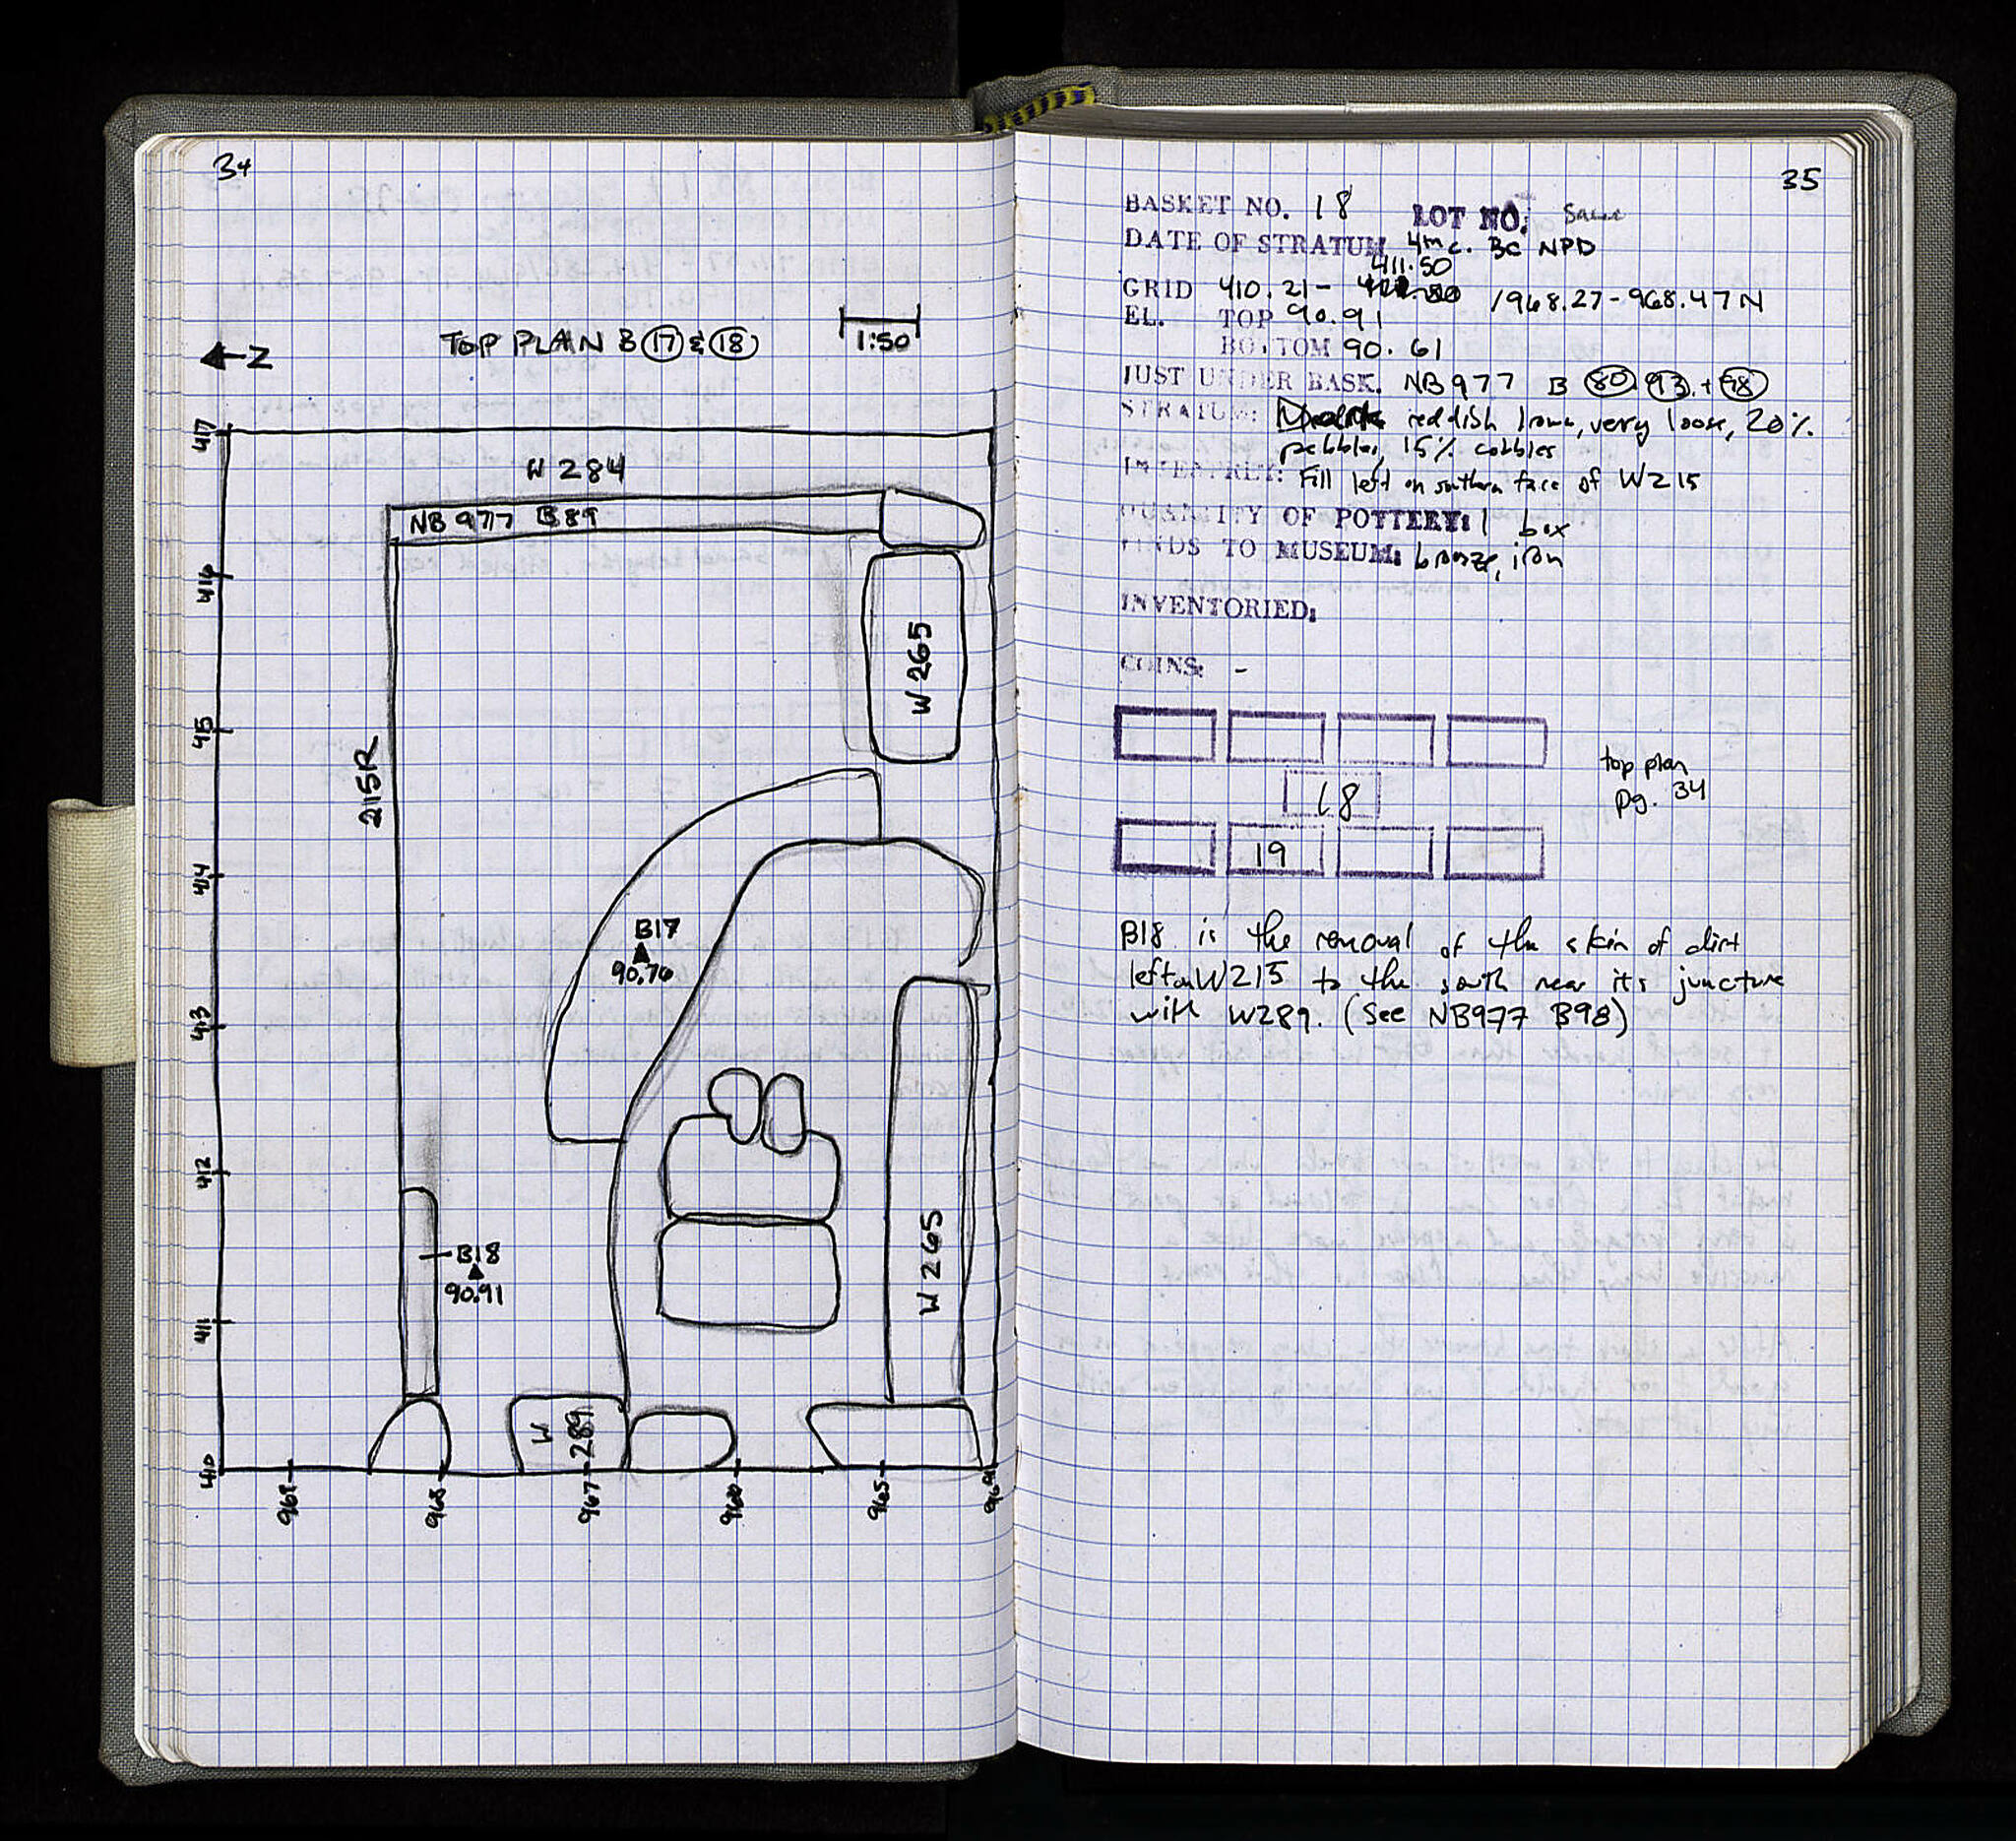 34
TOP PLAN B 17 & 18
1:50
Z
417
W 284
NB 977 B89
416
W 265
415
215R
414
B17
90.76
413
412
B18
90.91
W 265
411
W 289
410
969
968
967
966
965
964
35
BASKET NO. 18 LOT NO: Same
DATE OF STRATUM 4th c. BC NPD
411.50
GRID 410.21- / 968.27-968.47N
EL. TOP 90.91
BOTTOM 90.61
JUST UNDER BASK. NB 977 B 80, 93, + 98
STRATUM: reddish brown, very loose, 20%
pebbles, 15% cobbles
INTERPRET: Fill left on southern face of W215
QUANTITY OF POTTERY: 1 box
FINDS TO MUSEUM: bronze, iron
INVENTORIED:
COINS: -
top plan
pg. 34
18
19
B18 is the removal of the skin of dirt
left on W215 to the south near its juncture
with W289. (See NB977 B98)